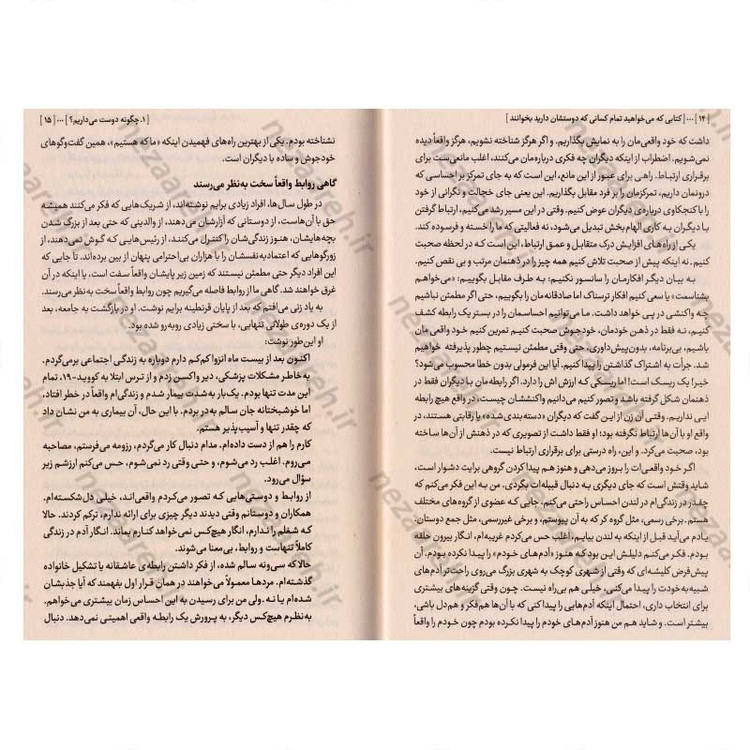 [ ۱۴ ] ••• [ کتابی که می‌خواهید تمام کسانی که دوستشان دارید بخوانند ]
داشت که خود واقعی‌مان را به نمایش بگذاریم. و اگر هرگز شناخته نشویم، هرگز واقعاً دیده
نمی‌شویم. اضطراب از اینکه دیگران چه فکری درباره‌مان می‌کنند، اغلب مانعی‌ست برای
برقراری ارتباط. راهی برای عبور از این مانع، این است که به جای تمرکز بر احساسی که
درونمان داریم، تمرکزمان را بر فرد مقابل بگذاریم. این یعنی جای خجالت و نگرانی از خود
را با کنجکاوی درباره‌ی دیگران عوض کنیم. وقتی در این مسیر رشد می‌کنیم، ارتباط گرفتن
با دیگران به کاری الهام‌بخش تبدیل می‌شود، نه فعالیتی که ما را خسته و فرسوده کند.
یکی از راه‌های افزایش درک متقابل و عمق ارتباط، این است که در لحظه صحبت
کنیم. نه اینکه پیش از صحبت تلاش کنیم همه چیز را در ذهنمان مرتب و بی نقص کنیم.
به بیان دیگر افکارمان را سانسور نکنیم؛ به طرف مقابل بگوییم: «می‌خواهم
بشناسمت» یا سعی کنیم افکار ترسناک اما صادقانه‌مان را بگوییم، حتی اگر مطمئن نباشیم
چه واکنشی در پی خواهد داشت. ما می‌توانیم احساسمان را در بستر یک رابطه کشف
کنیم، نه فقط در ذهن خودمان، خودجوش صحبت کنیم تمرین کنیم خود واقعی مان
باشیم، بی‌برنامه، بدون‌پیش‌داوری، حتی وقتی مطمئن نیستیم چطور پذیرفته خواهیم
شد. جرأت به اشتراک گذاشتن را پیدا می‌کنیم. آیا این فرمولی بدون خطا محسوب می‌شود؟
خیر! یک ریسک است! اما ریسکی که ارزش اش را دارد. اگر رابطه‌مان با دیگران فقط در
ذهنمان شکل گرفته باشد و تصور کنیم می‌دانیم واکنششان چیست، در واقع هیچ رابطه
ایی نداریم. وقتی آن زن از این گفت که دیگران «دسته‌بندی شده» یا رقابتی هستند، در
واقع او با آن‌ها ارتباط نگرفته بود؛ او فقط داشت از تصویری که در ذهنش از آن‌ها ساخته
بود، صحبت می‌کرد. و این، راه درستی برای برقراری ارتباط نیست.
اگر خود واقعی‌ات را بروز می‌دهی و هنوز هم پیدا کردن گروهی برایت دشوار است،
شاید وقتش است که جای دیگری به دنبال قبیله‌ات بگردی. من به این فکر می‌کنم که
چقدر در زندگی‌ام در لندن احساس راحتی می‌کنم. جایی که عضوی از گروه‌های مختلف
هستم. برخی رسمی، مثل گروه کر که به آن پیوستم، و برخی غیررسمی، مثل جمع دوستان.
یادم می‌آید قبل از اینکه به لندن بیایم، اغلب حس می‌کردم غریبه‌ام، انگار بیرون حلقه
بودم. فکر می‌کنم دلیلش این بود که هنوز «آدم‌های خودم» را پیدا نکرده بودم. آن
پیش‌فرض کلیشه‌ای که وقتی از شهری کوچک به شهری بزرگ می‌روی راحت‌تر آدم‌های
شبیه‌به‌خودت را پیدا می‌کنی، خیلی هم بی‌راه نیست. چون وقتی گزینه‌های بیشتری
برای انتخاب داری، احتمال اینکه آدم‌هایی را پیدا کنی که با آن‌ها هم‌فکر و هم‌دل باشی،
بیشتر است. و شاید هم من هنوز آدم‌های خودم را پیدا نکرده بودم چون خودم را واقعاً
[ ۱. چگونه دوست می‌داریم؟ ] ••• [ ۱۵ ]
نشناخته بودم. یکی از بهترین راه‌های فهمیدن اینکه «ما که هستیم»، همین گفت‌وگوهای
خودجوش و ساده با دیگران است.
گاهی روابط واقعاً سخت به‌نظر می‌رسند
در طول سال‌ها، افراد زیادی برایم نوشته‌اند، از شریک‌هایی که فکر می‌کنند همیشه
حق با آن‌هاست، از دوستانی که آزارشان می‌دهند، از والدینی که حتی بعد از بزرگ شدن
بچه‌هایشان، هنوز زندگی‌شان را کنترل می‌کنند، از رئیس‌هایی که گوش نمی‌دهند، از
زورگوهایی که اعتمادبه‌نفسشان را با هزاران بی‌احترامی پنهان از بین برده‌اند. تا جایی که
این افراد دیگر حتی مطمئن نیستند که زمین زیر پایشان واقعاً سفت است، یا اینکه در آن
غرق خواهند شد. گاهی ما از روابط فاصله می‌گیریم چون روابط واقعاً سخت به‌نظر می‌رسند.
به یاد زنی می‌افتم که بعد از پایان قرنطینه برایم نوشت. او در بازگشت به جامعه، بعد
از یک دوره‌ی طولانی تنهایی، با سختی زیادی روبه‌رو شده بود.
او این‌طور نوشت:
اکنون بعد از بیست ماه انزوا کم‌کم دارم دوباره به زندگی اجتماعی برمی‌گردم.
به خاطر مشکلات پزشکی، دیر واکسن زدم و از ترس ابتلا به کووید-۱۹، تمام
این مدت تنها بودم. یک‌بار به‌شدت بیمار شدم و زندگی‌ام واقعاً در خطر افتاد،
اما خوشبختانه جان سالم به‌در بردم. با این حال، آن بیماری به من نشان داد
که چقدر تنها و آسیب پذیر هستم.
کارم را هم از دست داده‌ام. مدام دنبال کار می‌گردم، رزومه می‌فرستم، مصاحبه
می‌روم. اغلب رد می‌شوم، و حتی وقتی رد نمی‌شوم، حس می‌کنم ارزشم زیر
سؤال می‌رود.
از روابط و دوستی‌هایی که تصور می‌کردم واقعی‌اند، خیلی دل‌شکسته‌ام.
همکاران و دوستانم وقتی دیدند دیگر چیزی برای ارائه ندارم، ترکم کردند. حالا
که شغلم را ندارم، انگار هیچ‌کس نمی‌خواهد کنارم بماند. انگار آدم در زندگی
کاملاً تنهاست و روابط، بی‌معنا می‌شوند.
حالا که سی‌ونه سالم شده، از فکر داشتن رابطه‌ی عاشقانه یا تشکیل خانواده
گذشته‌ام. مردها معمولاً می‌خواهند در همان قرار اول بفهمند که آیا جذبشان
شده‌ام یا نه. ولی من برای رسیدن به این احساس زمان بیشتری می‌خواهم.
به‌نظرم هیچ‌کس دیگر، به پرورش یک رابطه واقعی اهمیتی نمی‌دهد. دنبال
nezaareh.ir